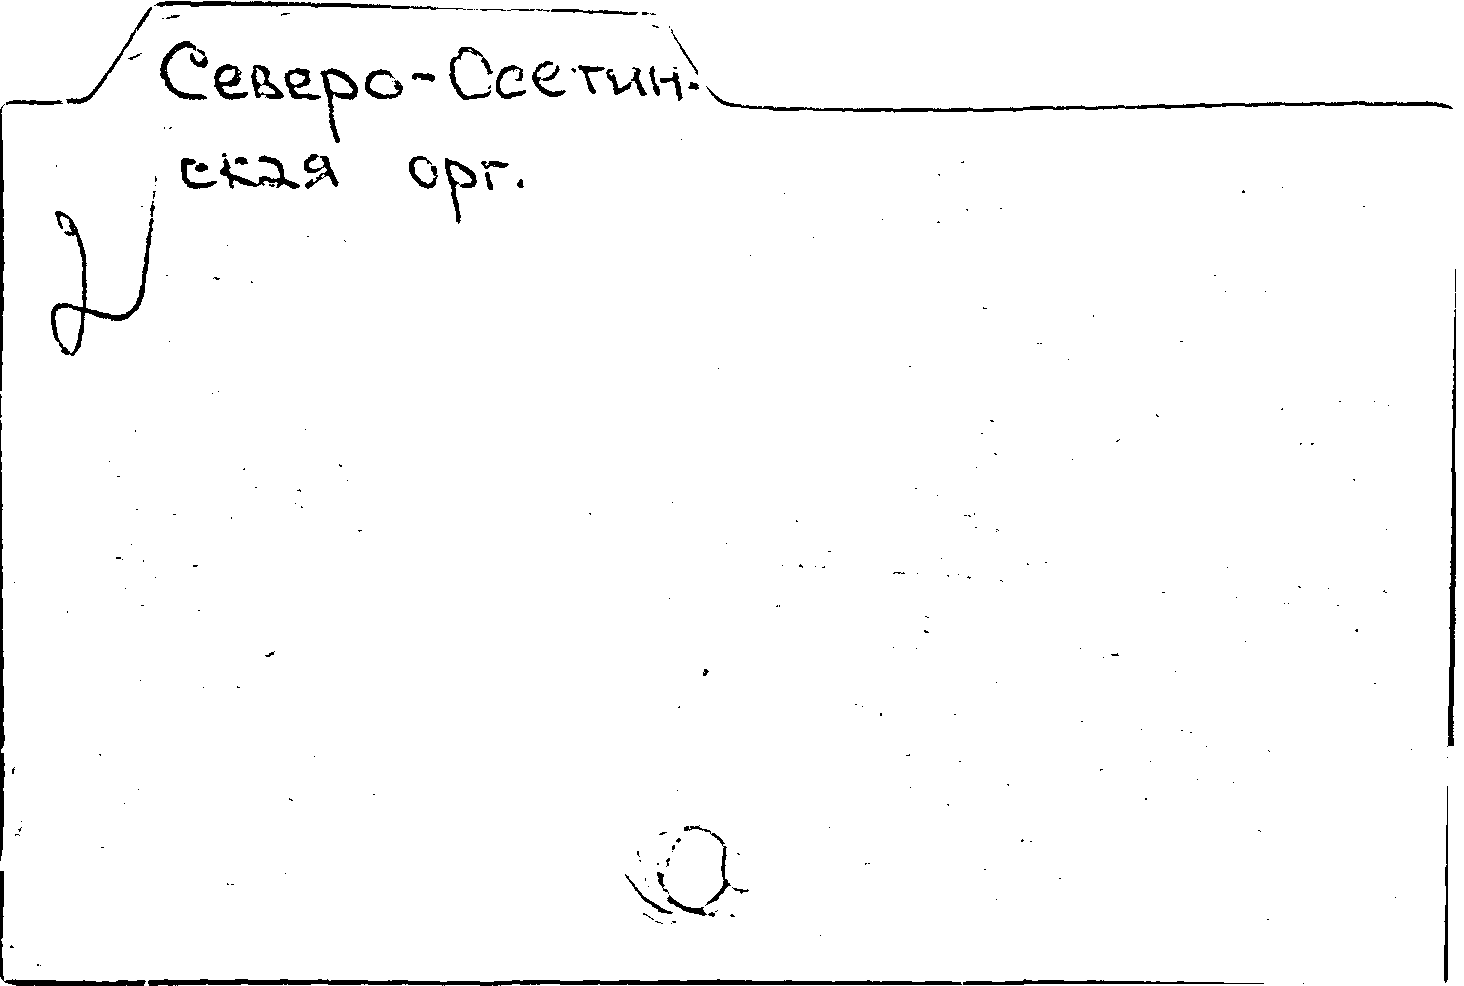 Северо-Осетин-
ская орг.